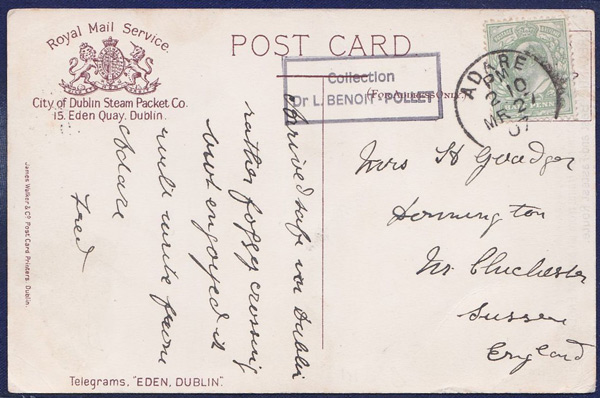 Royal Mail Service.
City of Dublin Steam Packet Co.
15. Eden Quay. Dublin.
POST CARD
Collection
Dr L. BENOIT-POLLET
(FOR ADDRESS ONLY)
ADARE
PM
2 10
MR 21
07
HALFPENNY
Arrived safe in Dublin
rather foggy crossing
but enjoyed it
will write from
Adare
Fred
Mrs H
Donnington
Nr Chichester
Sussex
England
James Walker & Co Post Card Printers. Dublin.
Telegrams, "EDEN, DUBLIN".